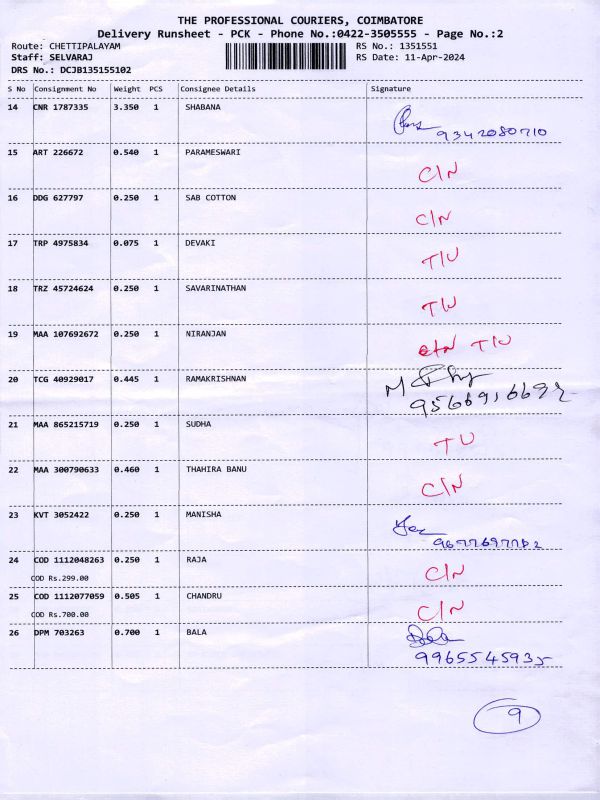 THE PROFESSIONAL COURIERS, COIMBATORE
Delivery Runsheet - PCK - Phone No.:0422-3505555 - Page No.:2
Route: CHETTIPALAYAM RS No.: 1351551
Staff: SELVARAJ RS Date: 11-Apr-2024
DRS No.: DCJB135155102
S No Consignment No Weight PCS Consignee Details Signature
14 CNR 1787335 3.350 1 SHABANA
9342080710
15 ART 226672 0.540 1 PARAMESWARI
C/N
16 DDG 627797 0.250 1 SAB COTTON
C/N
17 TRP 4975834 0.075 1 DEVAKI
T/U
18 TRZ 45724624 0.250 1 SAVARINATHAN
T/U
19 MAA 107692672 0.250 1 NIRANJAN
T/U
20 TCG 40929017 0.445 1 RAMAKRISHNAN
M
21 MAA 865215719 0.250 1 SUDHA
TU
22 MAA 300790633 0.460 1 THAHIRA BANU
C/N
23 KVT 3052422 0.250 1 MANISHA
24 COD 1112048263 0.250 1 RAJA
COD Rs.299.00
C/N
25 COD 1112077059 0.505 1 CHANDRU
COD Rs.700.00
C/N
26 DPM 703263 0.700 1 BALA
Bala
9965545935
9